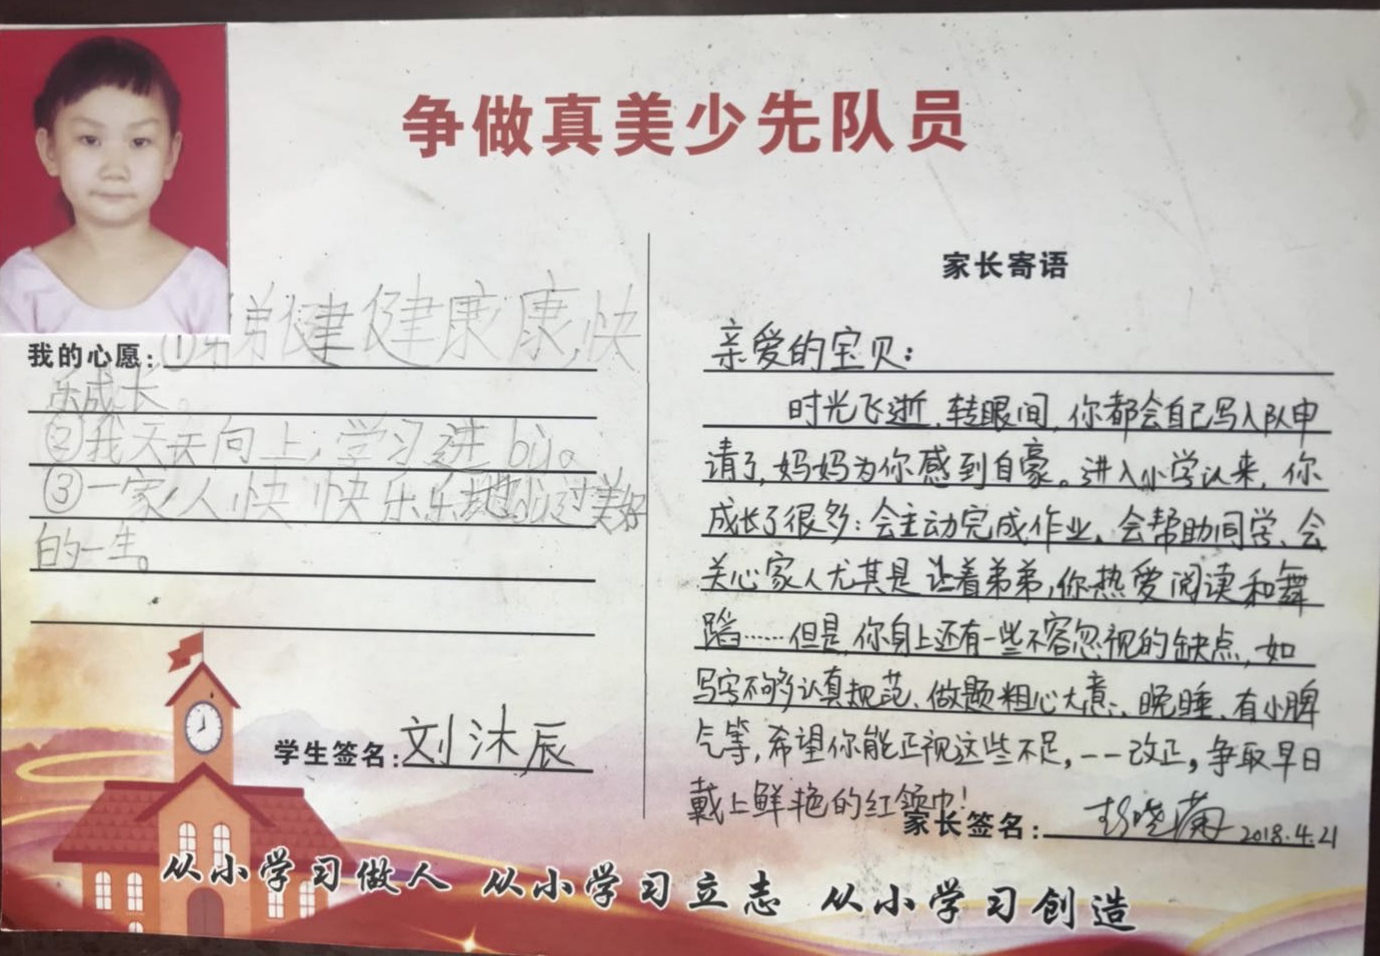 争做真美少先队员
我的心愿：①弟弟健健康康，快
乐成长。
②我天天向上，学习进bù。
③一家人快快乐乐地过美好
的一生。
学生签名：刘沐辰
家长寄语
亲爱的宝贝：
时光飞逝，转眼间，你都会自己写入队申
请了，妈妈为你感到自豪。进入小学以来，你
成长了很多：会主动完成作业、会帮助同学、会
关心家人尤其是让着弟弟，你热爱阅读和舞
蹈……但是，你身上还有一些不容忽视的缺点，如
写字不够认真规范、做题粗心大意、晚睡、有小脾
气等，希望你能正视这些不足，一一改正，争取早日
戴上鲜艳的红领巾！
家长签名：2018.4.21
从小学习做人 从小学习立志 从小学习创造